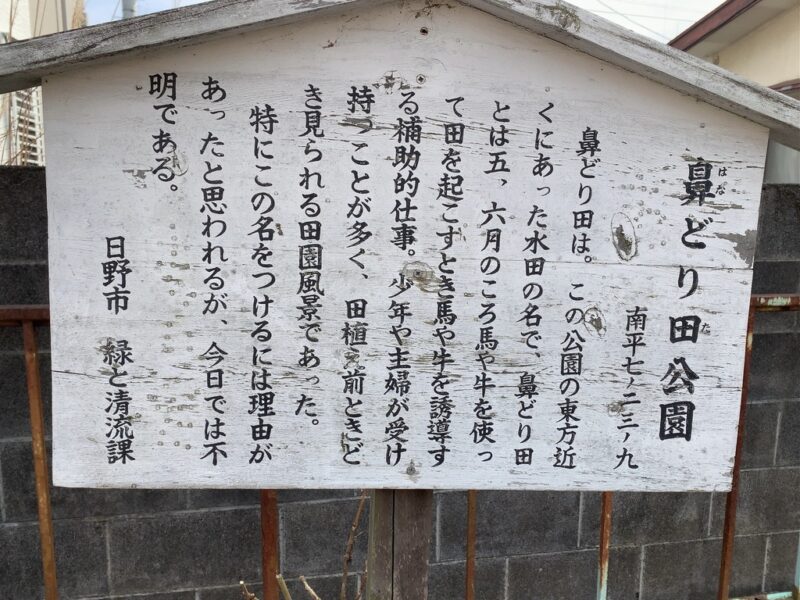 鼻どり田公園
はな
た
南平七ノ二三ノ九
鼻どり田は。この公園の東方近
くにあった水田の名で、鼻どり田
とは五、六月のころ馬や牛を使っ
て田を起こすとき馬や牛を誘導す
る補助的仕事。少年や主婦が受け
持つことが多く、田植え前ときど
き見られる田園風景であった。
特にこの名をつけるには理由が
あったと思われるが、今日では不
明である。
日野市 緑と清流課